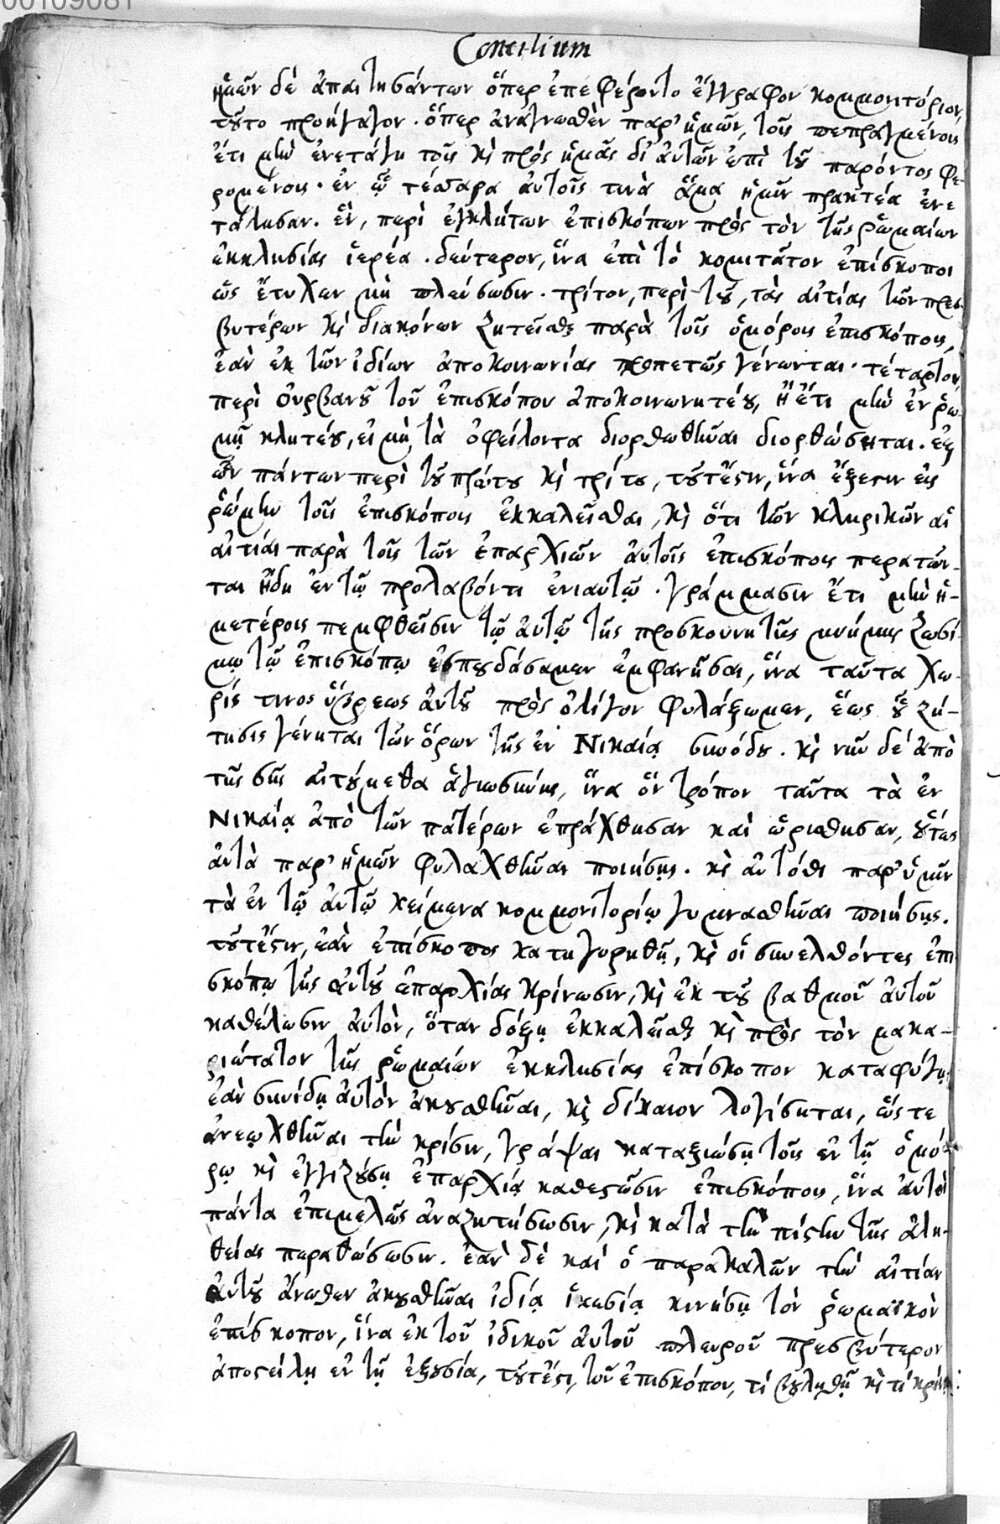 00109081
Concilium
ἡμῶν δὲ ἀπαιτησάντων ὅπερ ἐπεφέροντο ἔγγραφον κομμονιτόριον,
τοῦτο προήγαγον. ὅπερ ἀναγνωσθὲν παρ' ἡμῶν, τοῖς πεπραγμένοις
ἔτι μὴν ἐνετάγη τοῖς καὶ πρὸς ἡμᾶς δι' αὐτῶν ἐπὶ τοῦ παρόντος φε-
ρομένοις. ἐν ᾧ τέσσαρα αὐτοῖς τινὰ ἅμα ἡμῖν πρακτέα ἐνε
τάλησαν. ἓν, περὶ ἐγκλήτων ἐπισκόπων πρὸς τὸν τῆς ῥωμαίων
ἐκκλησίας ἱερέα. δεύτερον, ἵνα ἐπὶ τὸ κομιτᾶτον ἐπίσκοποι
ὡς ἔτυχεν μὴ πλεύσωσιν. τρίτον, περὶ τοῦ, τὰς αἰτίας τῶν πρεσ
βυτέρων καὶ διακόνων ζητεῖσθαι παρὰ τοῖς ὁμόροις ἐπισκόποις,
ἐὰν ἐκ τῶν ἰδίων ἀποκοινωνίας προπετῶς γένωνται. τέταρτον
περὶ Οὐρβανοῦ τοῦ ἐπισκόπου ἀποκοινωνητέου, ἢ ἔτι μὴν ἐν ῥώ
μῃ κλητέου, εἰ μὴ τὰ ὀφείλοντα διορθωθῆναι διορθώσηται. ἐξ
ὧν πάντων περὶ τοῦ πρώτου καὶ τρίτου, τουτέστιν, ἵνα ἔξεστιν εἰς
ῥώμην τοῖς ἐπισκόποις ἐκκαλεῖσθαι, καὶ ὅτι τῶν κληρικῶν αἱ
αἰτίαι παρὰ τοῖς τῶν ἐπαρχιῶν αὐτοῖς ἐπισκόποις περατῶν-
ται ἤδη ἐν τῷ προλαβόντι ἐνιαυτῷ. γράμμασιν ἔτι μὴν ἡ-
μετέροις πεμφθεῖσιν τῷ αὐτῷ τῆς προσκουνητῆς μνήμης Ζωσί
μῳ τῷ ἐπισκόπῳ ἐσπουδάσαμεν ἐμφανῆσαι, ἵνα ταῦτα χω-
ρίς τινος ὕβρεως αὐτοῦ πρὸς ὀλίγον φυλάξωμεν, ἕως οὗ ζή-
τησις γένηται τῶν ὅρων τῆς ἐν Νικαίᾳ συνόδου. καὶ νῦν δὲ ἀπὸ
τῆς σῆς αἰτούμεθα ἁγιωσύνης, ἵνα ὃν τρόπον ταῦτα τὰ ἐν
Νικαίᾳ ἀπὸ τῶν πατέρων ἐπράχθησαν καὶ ὡρίσθησαν, οὕτως
αὐτὰ παρ' ἡμῶν φυλαχθῆναι ποιήσῃς. καὶ αὐτόθι παρ' ὑμῖν
τὰ ἐν τῷ αὐτῷ κείμενα κομμονιτορίῳ γυμνασθῆναι ποιήσῃς.
τουτέστιν, ἐὰν ἐπίσκοπος κατηγορηθῇ, καὶ οἱ συνελθόντες ἐπι
σκόπῳ τῆς αὐτοῦ ἐπαρχίας κρίνωσιν, καὶ ἐκ τοῦ βαθμοῦ αὐτοῦ
καθέλωσιν αὐτὸν, ὅταν δόξῃ ἐκκαλεῖσθαι καὶ πρὸς τὸν μακα-
ριώτατον τῆς ῥωμαίων ἐκκλησίας ἐπίσκοπον καταφύγῃ
ἐὰν συνίδῃ αὐτὸν ἀκουσθῆναι, καὶ δίκαιον λογίσηται, ὥστε
ἀνεωχθῆναι τὴν κρίσιν, γράψαι καταξιώσῃ τοῖς ἐν τῇ ὁμό-
ρῳ καὶ ἐγγιζούσῃ ἐπαρχίᾳ καθεστῶσιν ἐπισκόποις, ἵνα αὐτοὶ
πάντα ἐπιμελῶς ἀναζητήσωσιν, καὶ κατὰ τὴν πίστιν τῆς ἀλη-
θείας περαθώσωσιν. ἐὰν δὲ καὶ ὁ παρακαλῶν τὴν αἰτίαν
αὐτοῦ ἄνωθεν ἀκουσθῆναι ἰδίᾳ ἱκεσίᾳ κινήσῃ τὸν ῥωμαϊκὸν
ἐπίσκοπον, ἵνα ἐκ τοῦ ἰδικοῦ αὐτοῦ πλευροῦ πρεσβύτερον
ἀποστείλῃ ἐν τῇ ἐξουσίᾳ, τουτέστι, τοῦ ἐπισκόπου, τί βουληθῇ καὶ τί κρίνῃ: